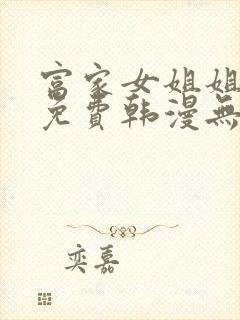 富家女姐姐
免費韩漫無
奕嘉